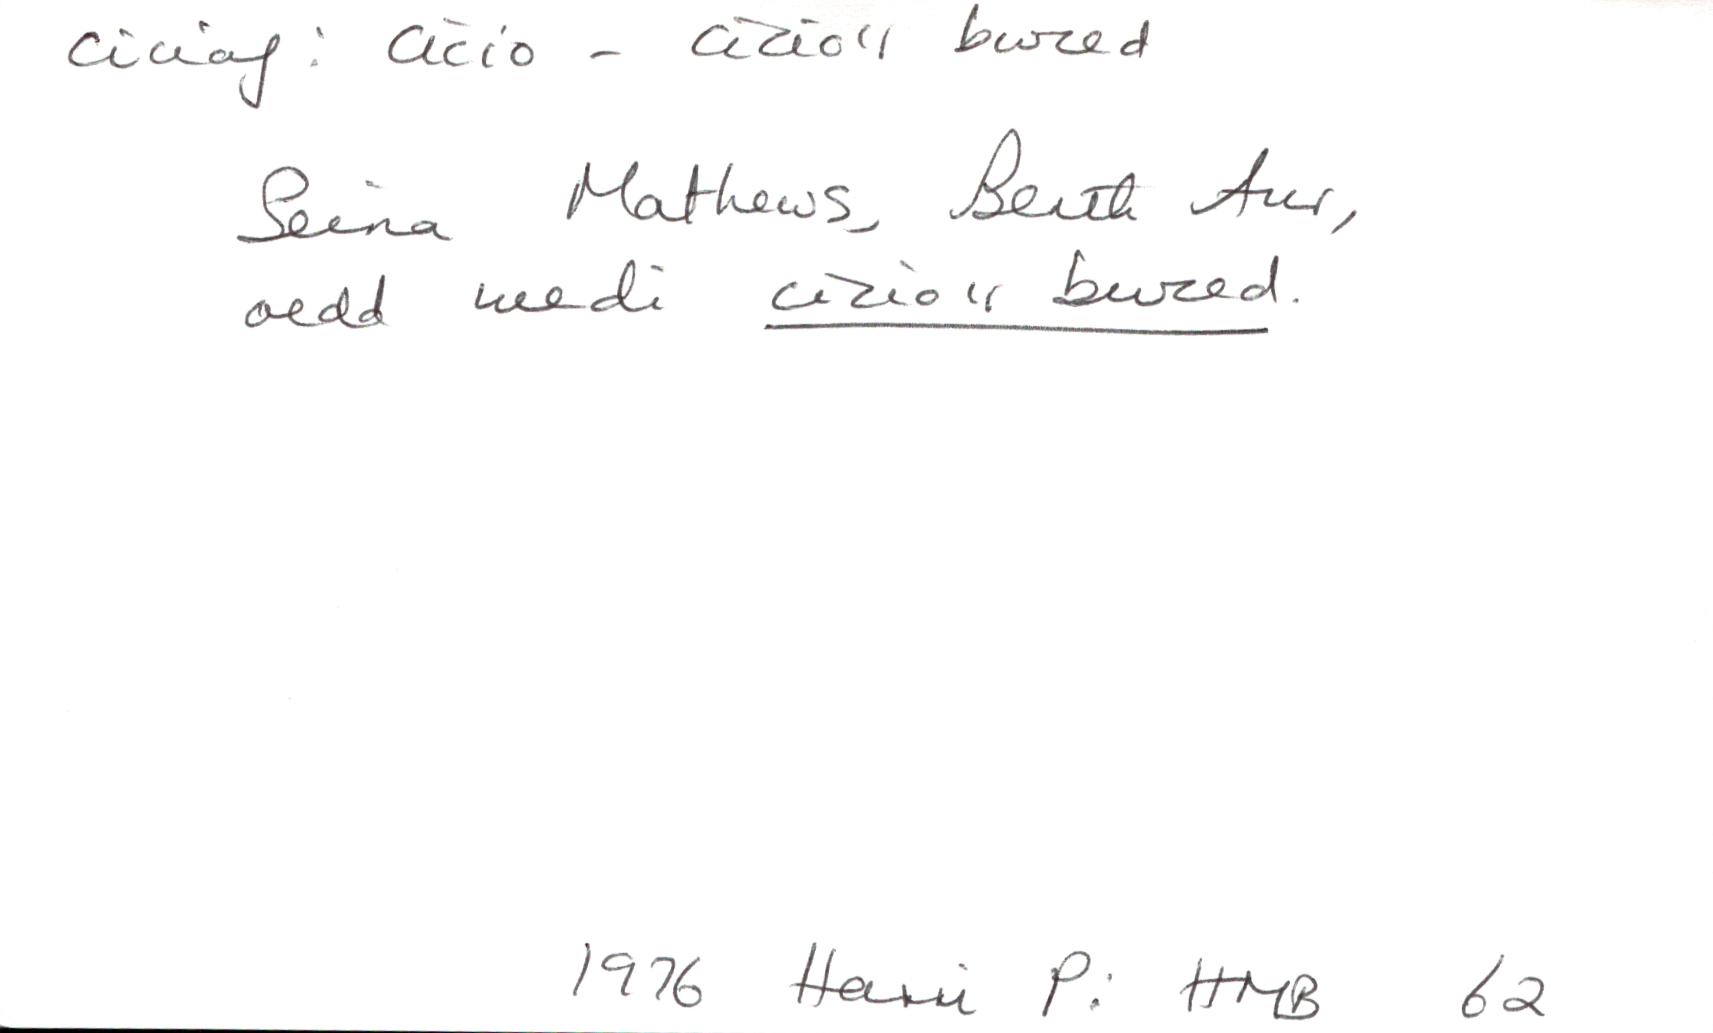 ciciaf: cicio - cicio'r bwced
Seina Mathews, Berth Aur,
oedd wedi cicio'r bwced.
1976 Harri P: HMB 62